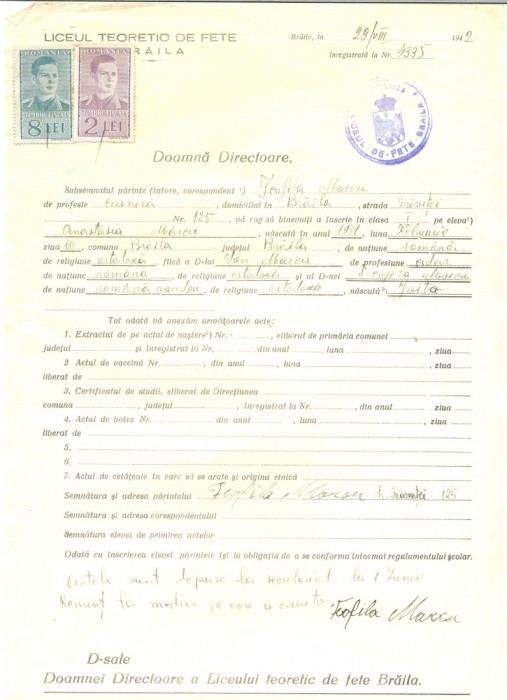 LICEUL TEORETIC DE FETE
BRĂILA
Brăila, în 29/VIII 1942
înregistrată la Nr. 4335
ROMANIA ROMANIA
8 LEI 2 LEI
DE-FETE-BRAILA
Doamnă Directoare,
Subsemnatul părinte (tutore, corespondent ¹) Teofila Marcu
de profesie casnică, domiciliat în Brăila, strada Griviței
Nr. 125, vă rog să binevoiți a înscrie în clasa I pe eleva²)
Anastasia Marcu, născută în anul 1931, luna Februarie
ziua 10, comuna Brăila județul Brăila, de națiune română
de religiune ortodoxă, fiică a D-lui Ion Marcu de profesiune
de națiune română de religiune ortodoxă și al D-nei Teofila Marcu
de națiune română de religiune ortodoxă, născută³)
Tot odată vă anexăm următoarele acte:
1. Extractul de pe actul de naștere²) Nr. , eliberat de primăria comunei
județul și înregistrat la Nr. din anul , luna , ziua
2 Actul de vaccină Nr. , din anul , luna , ziua
liberat de
3. Certificatul de studii, eliberat de Direcțiunea
comuna , județul , înregistrat la Nr. , din anul ziua
4. Actul de botez Nr. , din anul , luna , ziua
liberat de
5.
6.
7. Actul de cetățenie în care să se arate și origina etnică
Semnătura și adresa părintelui Teofila Marcu Griviței 125
Semnătura și adresa corespondentului
Semnătura elevei de primirea actelor
Odată cu înscrierea elevei părintele își ia obligația de a se conforma întocmai regulamentului școlar.
Actele sunt depuse la secretariat la 1 Iunie
Renunț la media pe care a
Teofila Marcu
D-sale
Doamnei Directoare a Liceului teoretic de fete Brăila.